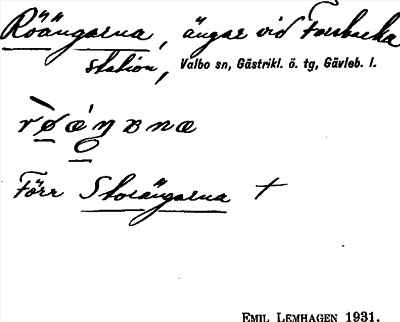 Röängarna, ängar vid Forsbacka
station, Valbo sn, Gästrikl. ö. tg, Gävleb. l.
Förr Storängarna †
EMIL LEMHAGEN 1931.